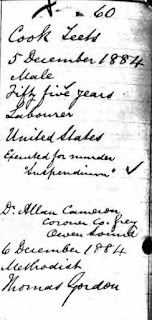 60
Cook Teets
5 December 1884
Male
Fifty five years
Labourer
United States
Executed for murder
"Suspendium"
Dr. Allan Cameron
Coroner Co. Grey
Owen Sound
6 December 1884
Methodist
Thomas Gordon